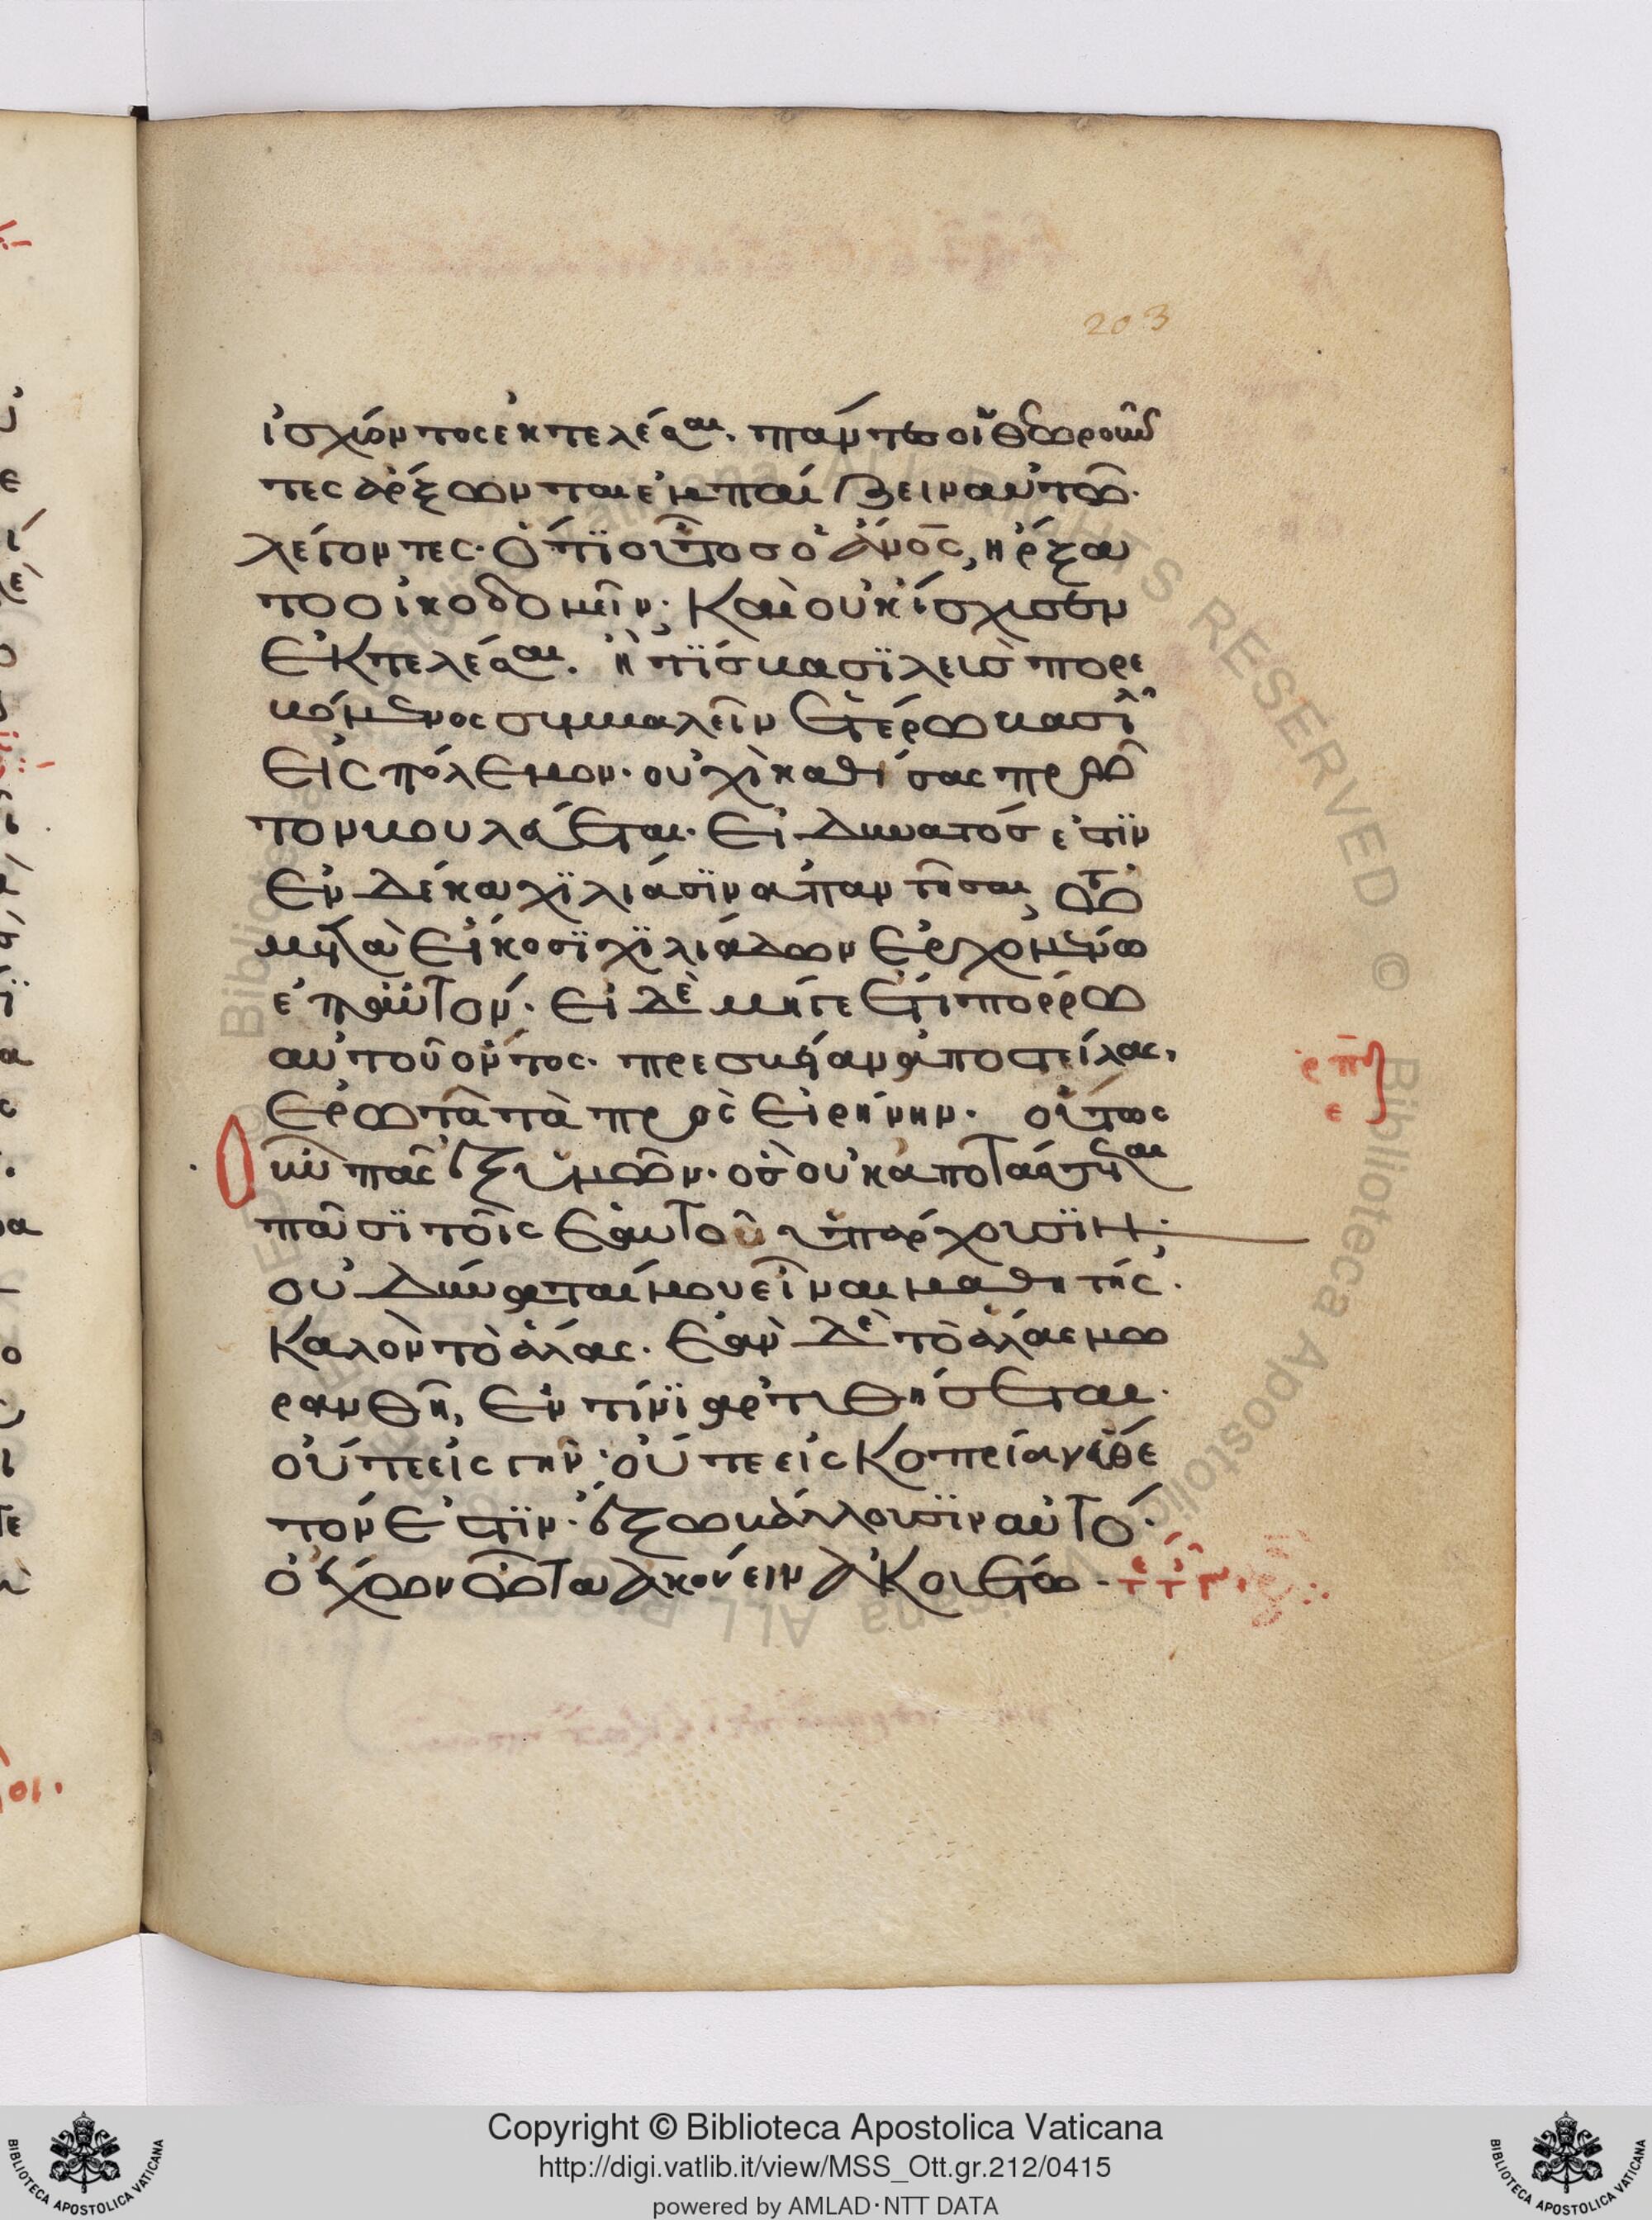 203
ἰσχύοντος ἐκτελέσαι. πάντες οἱ θεωροῦν
τες ἄρξωνται ἐμπαίζειν αὐτῶ.
λέγοντες· ὅτϊ οὗτοσ ὁ ἄνος, ἤρξα
το οἰκοδομεῖν· Καὶ οὐκ ἴσχυσεν
ἐκτελέσαι. ἢ τϊσ βασϊλεὺσ πορε
υόμενος συμβαλεῖν ἑτέρω βασϊλ
εἰς πόλεμον· οὐχὶ καθίσας πρῶ
τον βουλεύεται· εἰ δυνατόσ ἐστϊν
ἐν δέκα χϊλιάσϊν ἀπαντῆσαι, τῶ
μετὰ εἴκοσϊ χϊλιάδων ἐρχομένω
ἐπ αὐτόν· εἰ δὲ μήγε ἔτι πόρρω
αὐτοῦ ὄντος· πρεσβείαν ἀποστείλας,
ἐρωτᾶ τὰ πρὸς εἰρήνην· οὕτως
ρπγ
ε
οὖν πᾶς ἐξ ὑμῶν· ὃσ οὐκ ἀποτάσσεται
πᾶσϊ τοῖς ἑαυτοῦ ὑπάρχουσϊν·
οὐ δύναταί μου εἶναι μαθητής·
Καλὸν τὸ ἅλας· ἐὰν δὲ τὸ ἅλας μω
ρανθῆ, ἐν τίνϊ ἀρτυθήσεται·
οὔτε εἰς γῆν· οὔτε εἰς κοπρίαν εὔθε
τόν ἐστϊν· ἔξω βάλλουσϊν αὐτό·
ὁ ἔχων ὦτα ἀκούειν ἀκουέτω·
Copyright © Biblioteca Apostolica Vaticana
http://digi.vatlib.it/view/MSS_Ott.gr.212/0415
powered by AMLAD·NTT DATA